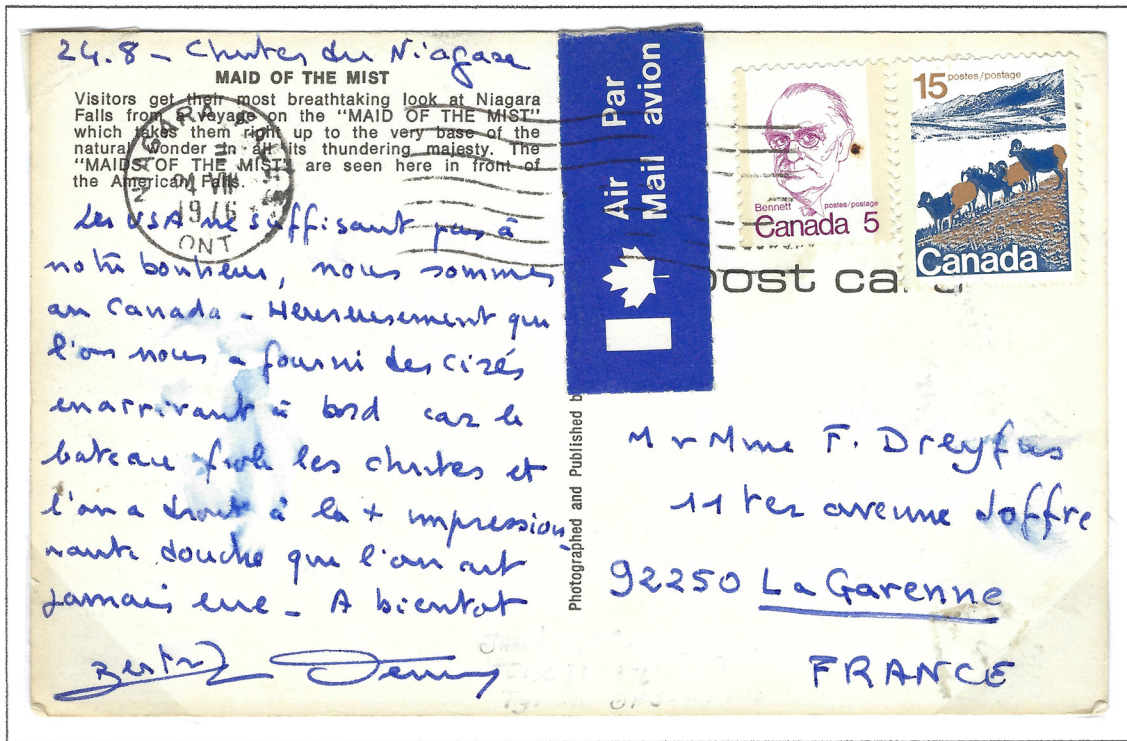 24.8 - Chutes du Niagara
MAID OF THE MIST
Visitors get their most breathtaking look at Niagara
Falls from a voyage on the "MAID OF THE MIST"
which takes them right up to the very base of the
natural wonder in all its thundering majesty. The
"MAIDS OF THE MIST" are seen here in front of
the American Falls.
NIAGARA
VIII
1976
ONT
Les USA ne suffisant pas à
notre bonheur, nous sommes
au Canada - Heureusement que
l'on nous a fourni des cirés
en arrivant à bord car le
bateau frole les chutes et
l'on a droit à la + impression
nante douche que l'on ait
jamais eue - A bientot
Air Par
Mail avion
Bennett postes/postage
Canada 5
15 postes/postage
Canada
post card
Photographed and Published by
Mr Mme F. Dreyfus
11 ter avenue Joffre
92250 La Garenne
FRANCE